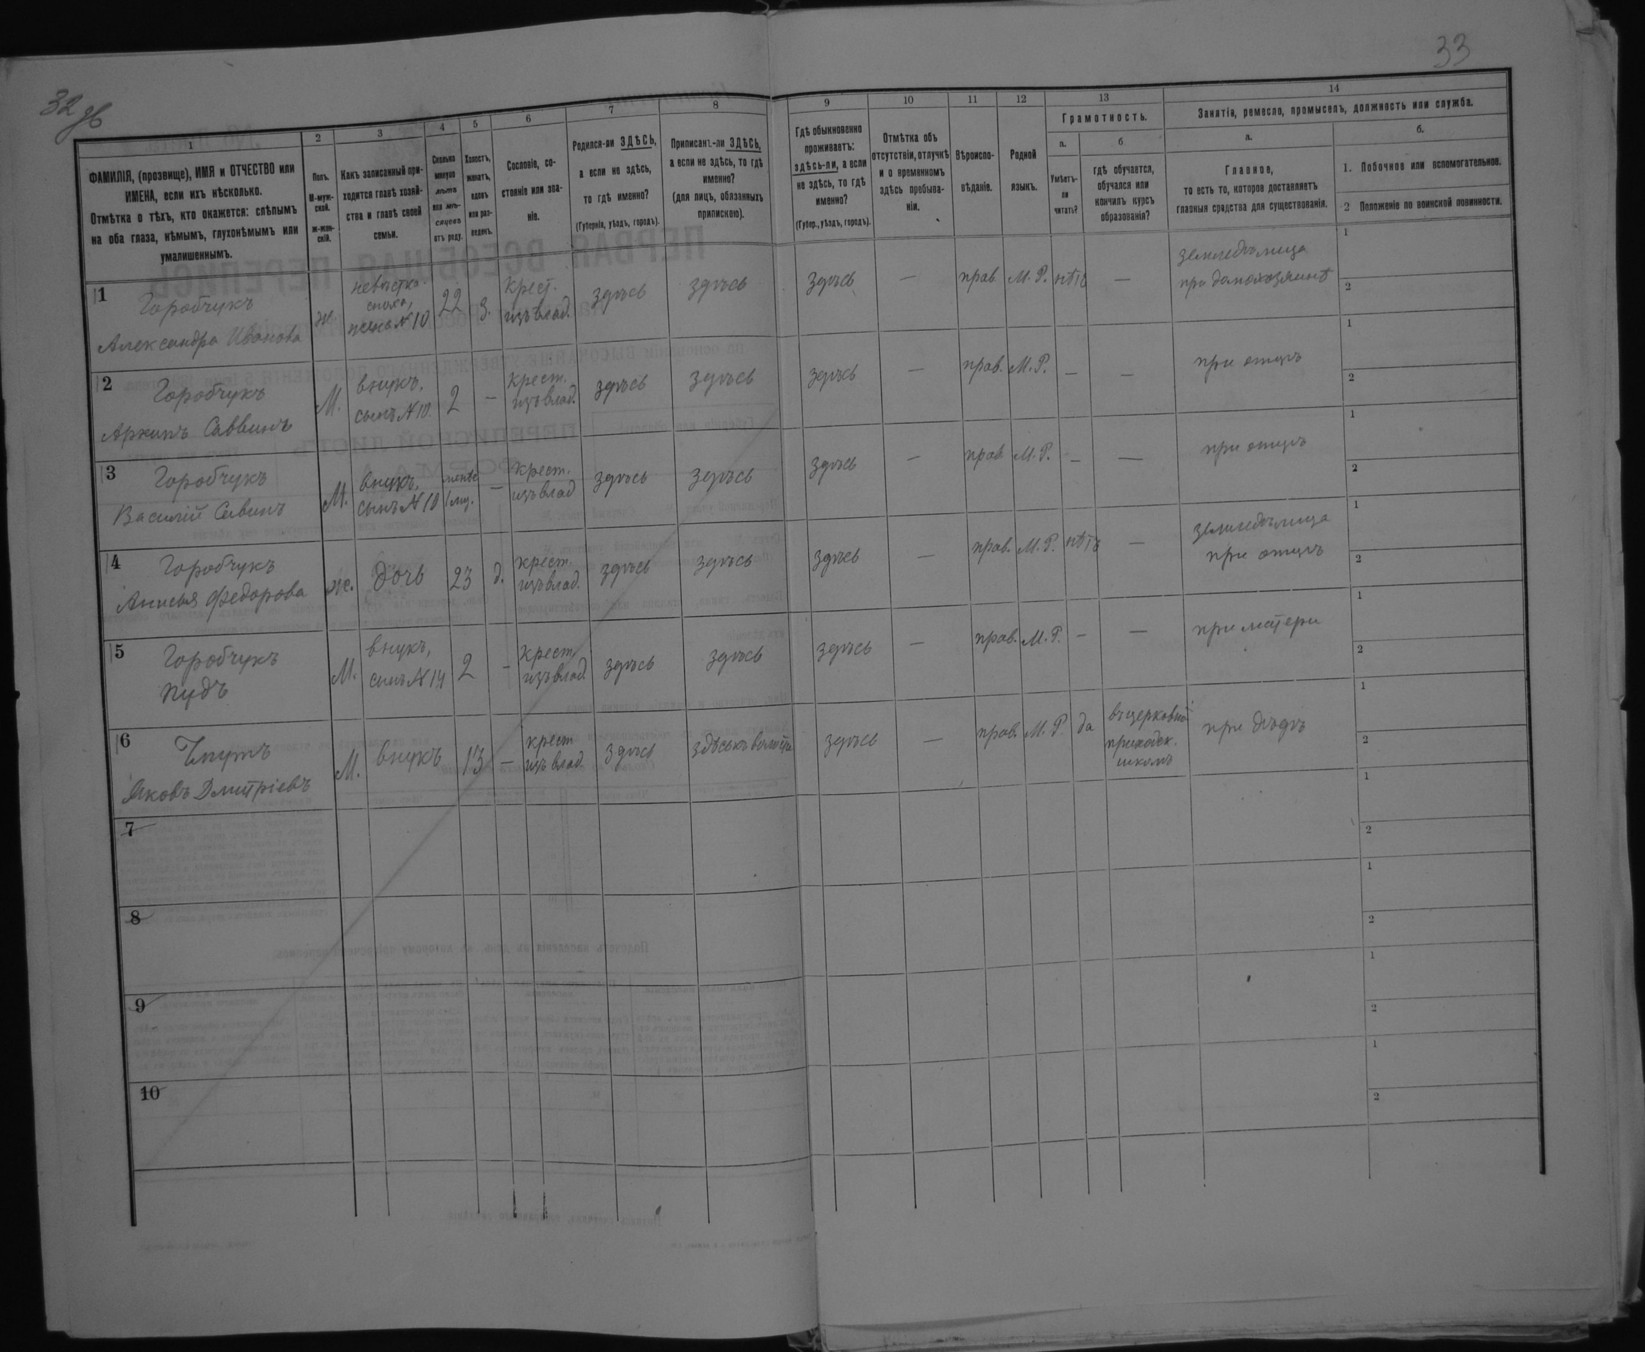 32 об
33
1
ФАМИЛІЯ, (прозвище), ИМЯ и ОТЧЕСТВО или
ИМЕНА, если ихъ нѣсколько.
Отмѣтка о тѣхъ, кто окажется: слѣпымъ
на оба глаза, нѣмымъ, глухонѣмымъ или
умалишеннымъ.
2
Полъ.
М-муж-
ской.
ж-жен-
скій.
3
Какъ записанный при-
ходится главѣ хозяй-
ства и главѣ своей
семьи.
4
Сколько
минуло
лѣтъ
или мѣ-
сяцевъ
отъ роду.
5
Холостъ,
женатъ,
вдовъ
или раз-
веденъ.
6
Сословіе, со-
стояніе или зва-
ніе.
7
Родился-ли ЗДѢСЬ,
а если не здѣсь,
то гдѣ именно?
(Губернія, уѣздъ, городъ).
8
Приписанъ-ли ЗДѢСЬ,
а если не здѣсь, то гдѣ
именно?
(для лицъ, обязанныхъ
припискою).
9
Гдѣ обыкновенно
проживаетъ:
здѣсь-ли, а если
не здѣсь, то гдѣ
именно?
(Губер., уѣздъ, городъ).
10
Отмѣтка объ
отсутствіи, отлучкѣ
и о временномъ
здѣсь пребыва-
ніи.
11
Вѣроиспо-
вѣданіе.
12
Родной
языкъ.
13
Грамотность.
а.
Умѣетъ-
ли
читать?
б
гдѣ обучается,
обучался или
кончилъ курсъ
образованія?
14
Занятія, ремесло, промыселъ, должность или служба.
а.
Главное,
то есть то, которое доставляетъ
главныя средства для существованія.
б.
1. Побочное или вспомогательное.
2 Положеніе по воинской повинности.
1
Горобчукъ
Александра Иванова
ж
невѣстка
жена № 10
22
з.
крест.
изъ влад.
здѣсь
здѣсь
здѣсь
—
прав.
М. Р.
нѣтъ
—
земледѣлица
при домохозяинѣ
1
2
2
Горобчукъ
Архипъ Саввинъ
М.
внукъ.
сынъ № 10.
2
—
крест.
изъ влад.
здѣсь
здѣсь
здѣсь
—
прав.
М. Р.
—
—
при отцѣ
1
2
3
Горобчукъ
Василій Савинъ
М.
внукъ.
сынъ № 10
менѣе
1 мц.
—
крест.
изъ влад
здѣсь
здѣсь
здѣсь
—
прав
М. Р.
—
—
при отцѣ
1
2
4
Горобчукъ
Анисья Федорова
же.
дочь
23
д.
крест.
изъ влад.
здѣсь
здѣсь
здѣсь
—
прав.
М. Р.
нѣтъ
—
земледѣлица
при отцѣ
1
2
5
Горобчукъ
Пудъ
М.
внукъ,
сынъ № 14
2
—
крест.
изъ влад.
здѣсь
здѣсь
здѣсь
—
прав.
М. Р.
—
—
при матери
1
2
6
Яковъ Дмитріевъ
М.
внукъ
13
—
крест
изъ влад.
здѣсь
здѣсь
—
прав.
М. Р.
да
въ церковно
приходск.
школѣ
при дѣдѣ
1
2
7
1
2
8
1
2
9
1
2
10
1
2